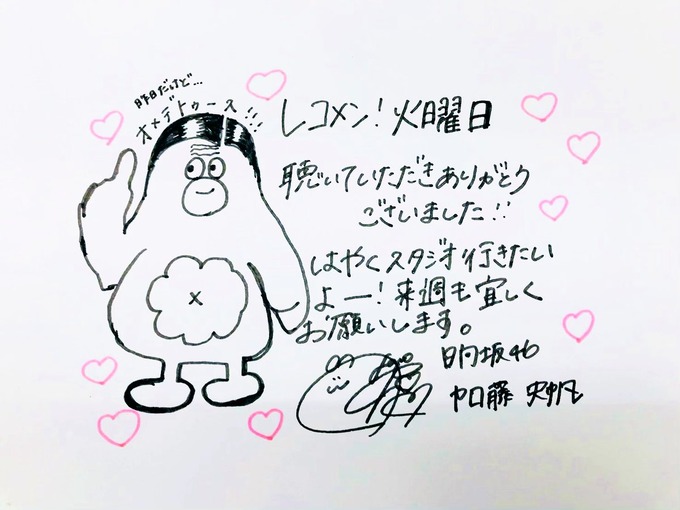 昨日だけど…
オメデトゥース!!!
レコメン!火曜日
聴いていただきありがとう
ございました!!
はやくスタジオ行きたい
よー!来週も宜しく
お願いします。
日向坂46
加藤 史帆